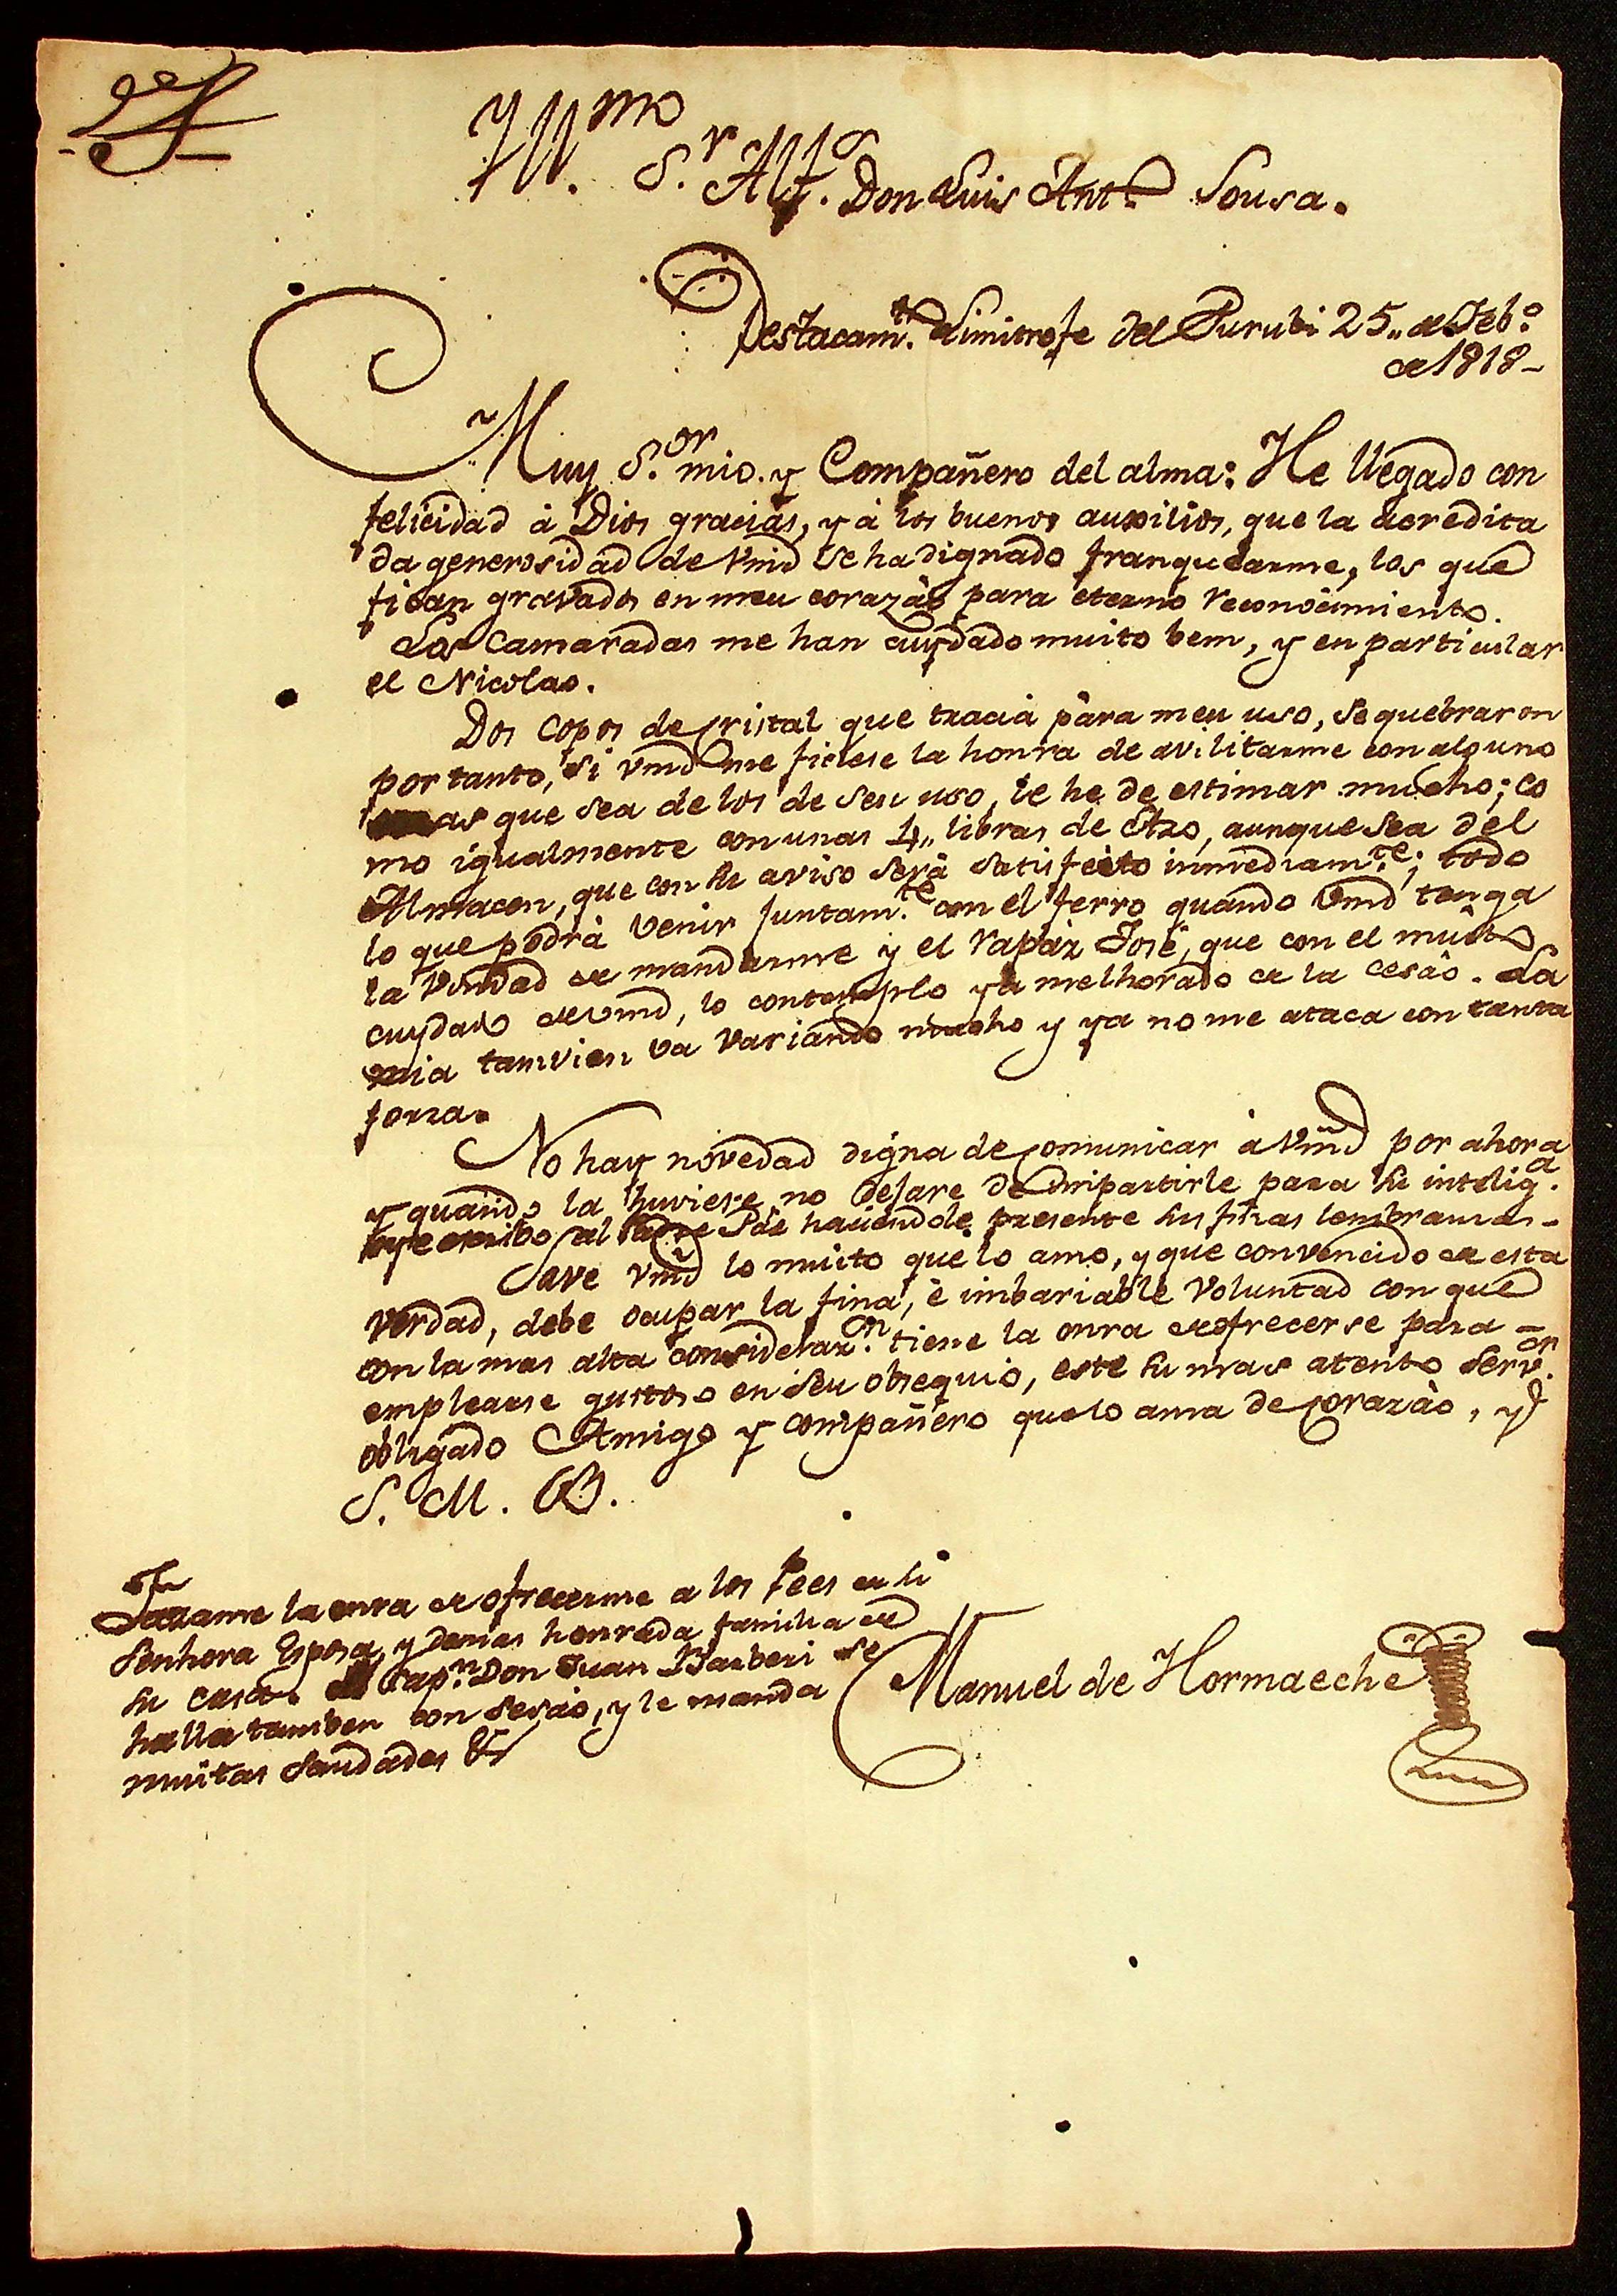 Yll.mo S.r Alf.s Don Luis Ant.o Sousa.
Destacam.to Limitrofe del Purubi 25,, de Feb.o
de 1818_
Muy S.or mio. y Compañero del alma: He llegado con
felicidad à Dios gracias, y à los buenos auxilios, que la acredita
da generosidad de Vmd se ha dignado franquearme, los que
fican gravados en meu corazào para eterno reconocimiento.
Los Camaradas me han cuydado muito bem, y en particular
el Nicolao.
Dos copos de cristal que tracia para meu uso, se quebraron
por tanto, si Vmd me ficiese la honra de avilitarme con alguno
mas que sea de los de seu uso, le he de estimar mucho; co
mo igualmente con unas 4,, libras de
Almacen, que con su aviso serà satisfeito inmediam.te; todo
lo que podrà venir juntam.te con el ferro quando Vmd tenga
la vondad de mandarme y el rapàz José, que con el muito
cuydado de Vmd, lo contemplo ya melhorado de la cesào. La
mia tamvien va variando mucho y ya no me ataca con tanta
forza.
No hay novedad digna de comunicar à Vmd por ahora
y quando la huviere no dejare de impartirle para su intelig.a
oy escribo al Padre Páz haciendole presente sus finas lembranzas_
Save Vmd lo muito que lo amo, y que convencido de esta
verdad, debe ocupar la fina, è imbariable voluntad con que
con la mas alta consideraz.on tiene la onra de ofrecerse para
emplearse gustoso en seu obsequio, este su mas atento serv.or
obligado Amigo y compañero que lo ama de corazào, y
S. M. B.
la onra de ofrecerme a los pees de su
Senhora Esposa, y demas honrada familia de
su casa. El Cap.n Don Juan Barberi se
halla tamben con sesào, y le manda
muitas saudades &
Manuel de Hormaeche